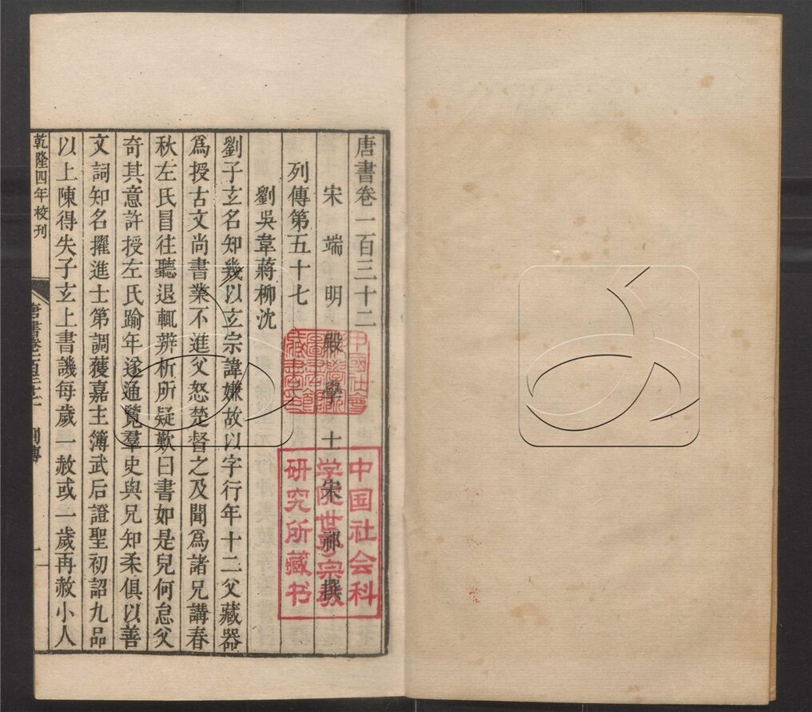 唐書卷一百三十二
宋端明殿學士宋祁撰
列傳第五十七
劉吳韋蔣柳沈
劉子玄名知幾以玄宗諱嫌故以字行年十二父藏器
爲授古文尚書業不進父怒楚督之及聞爲諸兄講春
秋左氏冒往聽退輒辨析所疑歎曰書如是兒何怠父
奇其意許授左氏踰年遂通覽羣史與兄知柔俱以善
文詞知名擢進士第調獲嘉主簿武后證聖初詔九品
以上陳得失子玄上書譏每歲一赦或一歲再赦小人
乾隆四年校刊
唐書卷一百三十二 列傳
一
中国社会科
学院世界宗教
研究所藏书